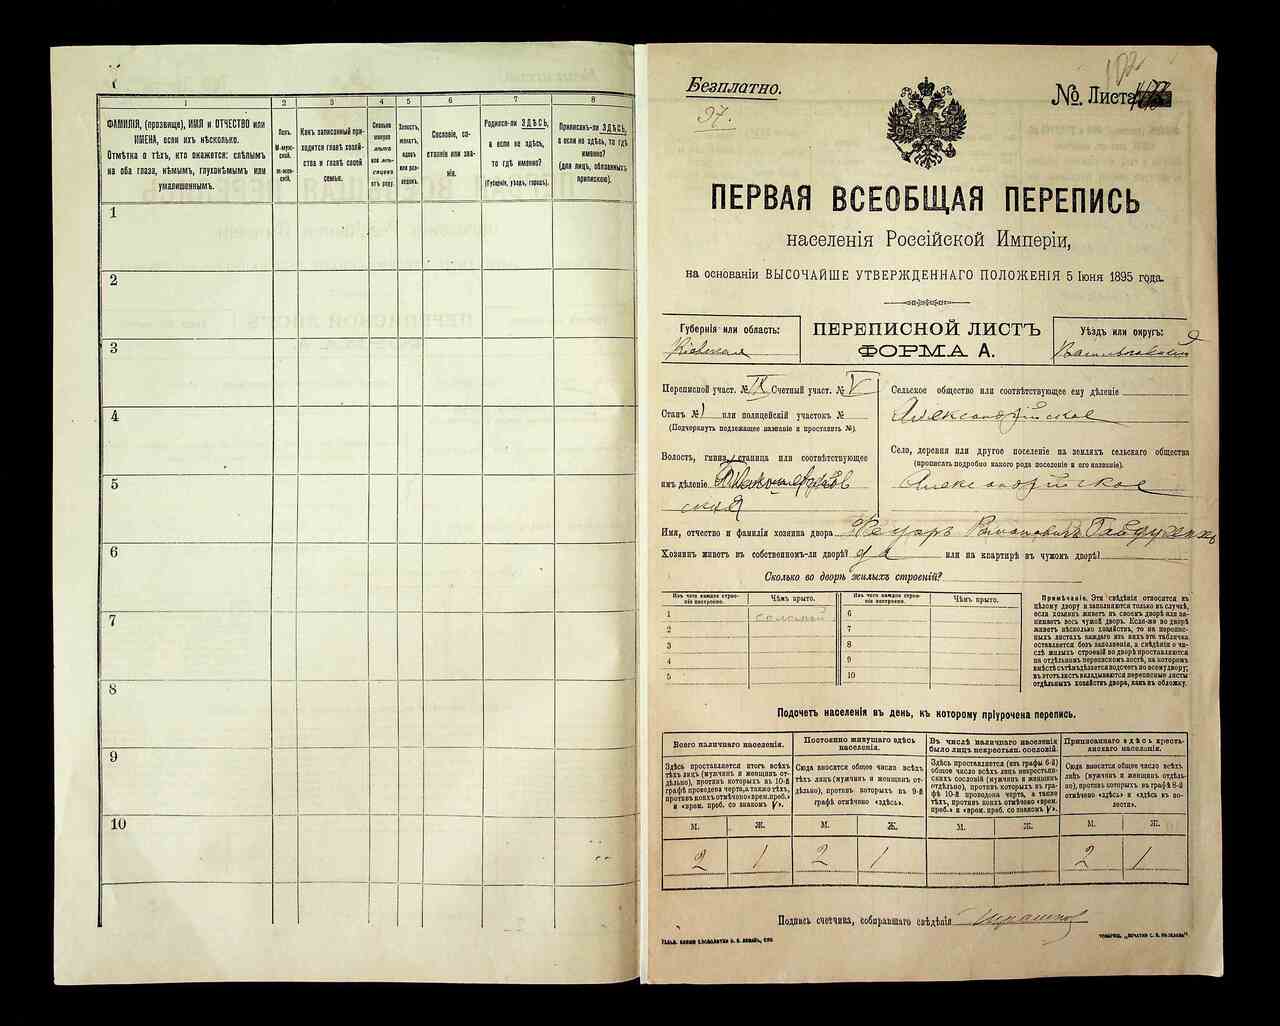 1
2
3
4
5
6
7
8
ФАМИЛІЯ, (прозвище), ИМЯ и ОТЧЕСТВО или
ИМЕНА, если ихъ нѣсколько.
Отмѣтка о тѣхъ, кто окажется: слѣпымъ
на оба глаза, нѣмымъ, глухонѣмымъ или
умалишеннымъ.
Полъ.
М-мужской.
Ж-женскій.
Какъ записанный при-
ходится главѣ хозяй-
ства и главѣ своей
семьи.
Сколько
минуло
лѣтъ
или мѣ-
сяцевъ
отъ роду.
Холостъ,
женатъ,
вдовъ
или раз-
веденъ.
Сословіе, со-
стояніе или зва-
ніе.
Родился-ли ЗДѢСЬ,
а если не здѣсь,
то гдѣ именно?
(Губернія, уѣздъ, городъ).
Приписанъ-ли ЗДѢСЬ,
а если не здѣсь, то гдѣ
именно?
(для лицъ, обязанныхъ
припискою).
1
2
3
4
5
6
7
8
9
10
Безплатно.
97.
102
№ Листа
ПЕРВАЯ ВСЕОБЩАЯ ПЕРЕПИСЬ
населенія Россійской Имперіи,
на основаніи ВЫСОЧАЙШЕ УТВЕРЖДЕННАГО ПОЛОЖЕНІЯ 5 Іюня 1895 года.
Губернія или область:
Кіевская
ПЕРЕПИСНОЙ ЛИСТЪ
ФОРМА А.
Уѣздъ или округъ:
Васильковскій
Переписной участ. № IX Счетный участ. № V
Станъ № 1 или полицейскій участокъ №
(Подчеркнуть подлежащее названіе и проставить №).
Волость, гмина, станица или соотвѣтствующее
имъ дѣленіе
ская
Сельское общество или соотвѣтствующее ему дѣленіе
Александрійское
Село, деревня или другое поселеніе на земляхъ сельскаго общества
(прописать подробно какого рода поселеніе и его названіе).
Александрійское
Имя, отчество и фамилія хозяина двора Федоръ Романовичъ Гайдученко
Хозяинъ живетъ въ собственномъ-ли дворѣ? да или на квартирѣ въ чужомъ дворѣ?
Сколько во дворѣ жилыхъ строеній?
Изъ чего каждое строе-
ніе построено.
Чѣмъ крыто.
Изъ чего каждое строе-
ніе построено.
Чѣмъ крыто.
1 соломой
2
3
4
5
6
7
8
9
10
Примѣчаніе. Эти свѣдѣнія относятся къ
цѣлому двору и заполняются только въ случаѣ,
если хозяинъ живетъ въ своемъ дворѣ или за-
нимаетъ весь чужой дворъ. Если-же во дворѣ
живетъ нѣсколько хозяйствъ, то на перепис-
ныхъ листахъ каждаго изъ нихъ эта табличка
оставляется безъ заполненія, а свѣдѣнія о чи-
слѣ жилыхъ строеній во дворѣ проставляются
на отдѣльномъ переписномъ листѣ, на которомъ
вмѣстѣ съ тѣмъ дѣлается подсчетъ по всему двору;
въ этотъ листъ вкладываются переписные листы
отдѣльныхъ хозяйствъ двора, какъ въ обложку.
Подсчетъ населенія въ день, къ которому пріурочена перепись.
Всего наличнаго населенія.
Постоянно живущаго здѣсь
населенія.
Въ числѣ наличнаго населенія
было лицъ некрестьян. сословій.
Приписаннаго здѣсь кресть-
янскаго населенія.
Здѣсь проставляется итогъ всѣхъ
тѣхъ лицъ (мужчинъ и женщинъ от-
дѣльно), противъ которыхъ въ 10-й
графѣ проведена черта, а также тѣхъ,
противъ коихъ отмѣчено «врем. преб.»
и «врем. преб. со знакомъ V».
Сюда вносится общее число всѣхъ
тѣхъ лицъ (мужчинъ и женщинъ от-
дѣльно), противъ которыхъ въ 9-й
графѣ отмѣчено «здѣсь».
Здѣсь проставляется (изъ графы 6-й)
общее число всѣхъ лицъ некрестьян-
скихъ сословій (мужчинъ и женщинъ
отдѣльно), противъ которыхъ въ гра-
фѣ 10-й проведена черта, а также
тѣхъ, противъ коихъ отмѣчено «врем.
преб.» и «врем. преб. со знакомъ V».
Сюда вносится общее число всѣхъ
лицъ (мужчинъ и женщинъ отдѣль-
но), противъ которыхъ въ графѣ 8-й
отмѣчено «здѣсь» и «здѣсь въ во-
лости».
М. Ж. М. Ж. М. Ж. М. Ж.
2 1 2 1 2 1
Подпись счетчика, собиравшаго свѣдѣнія